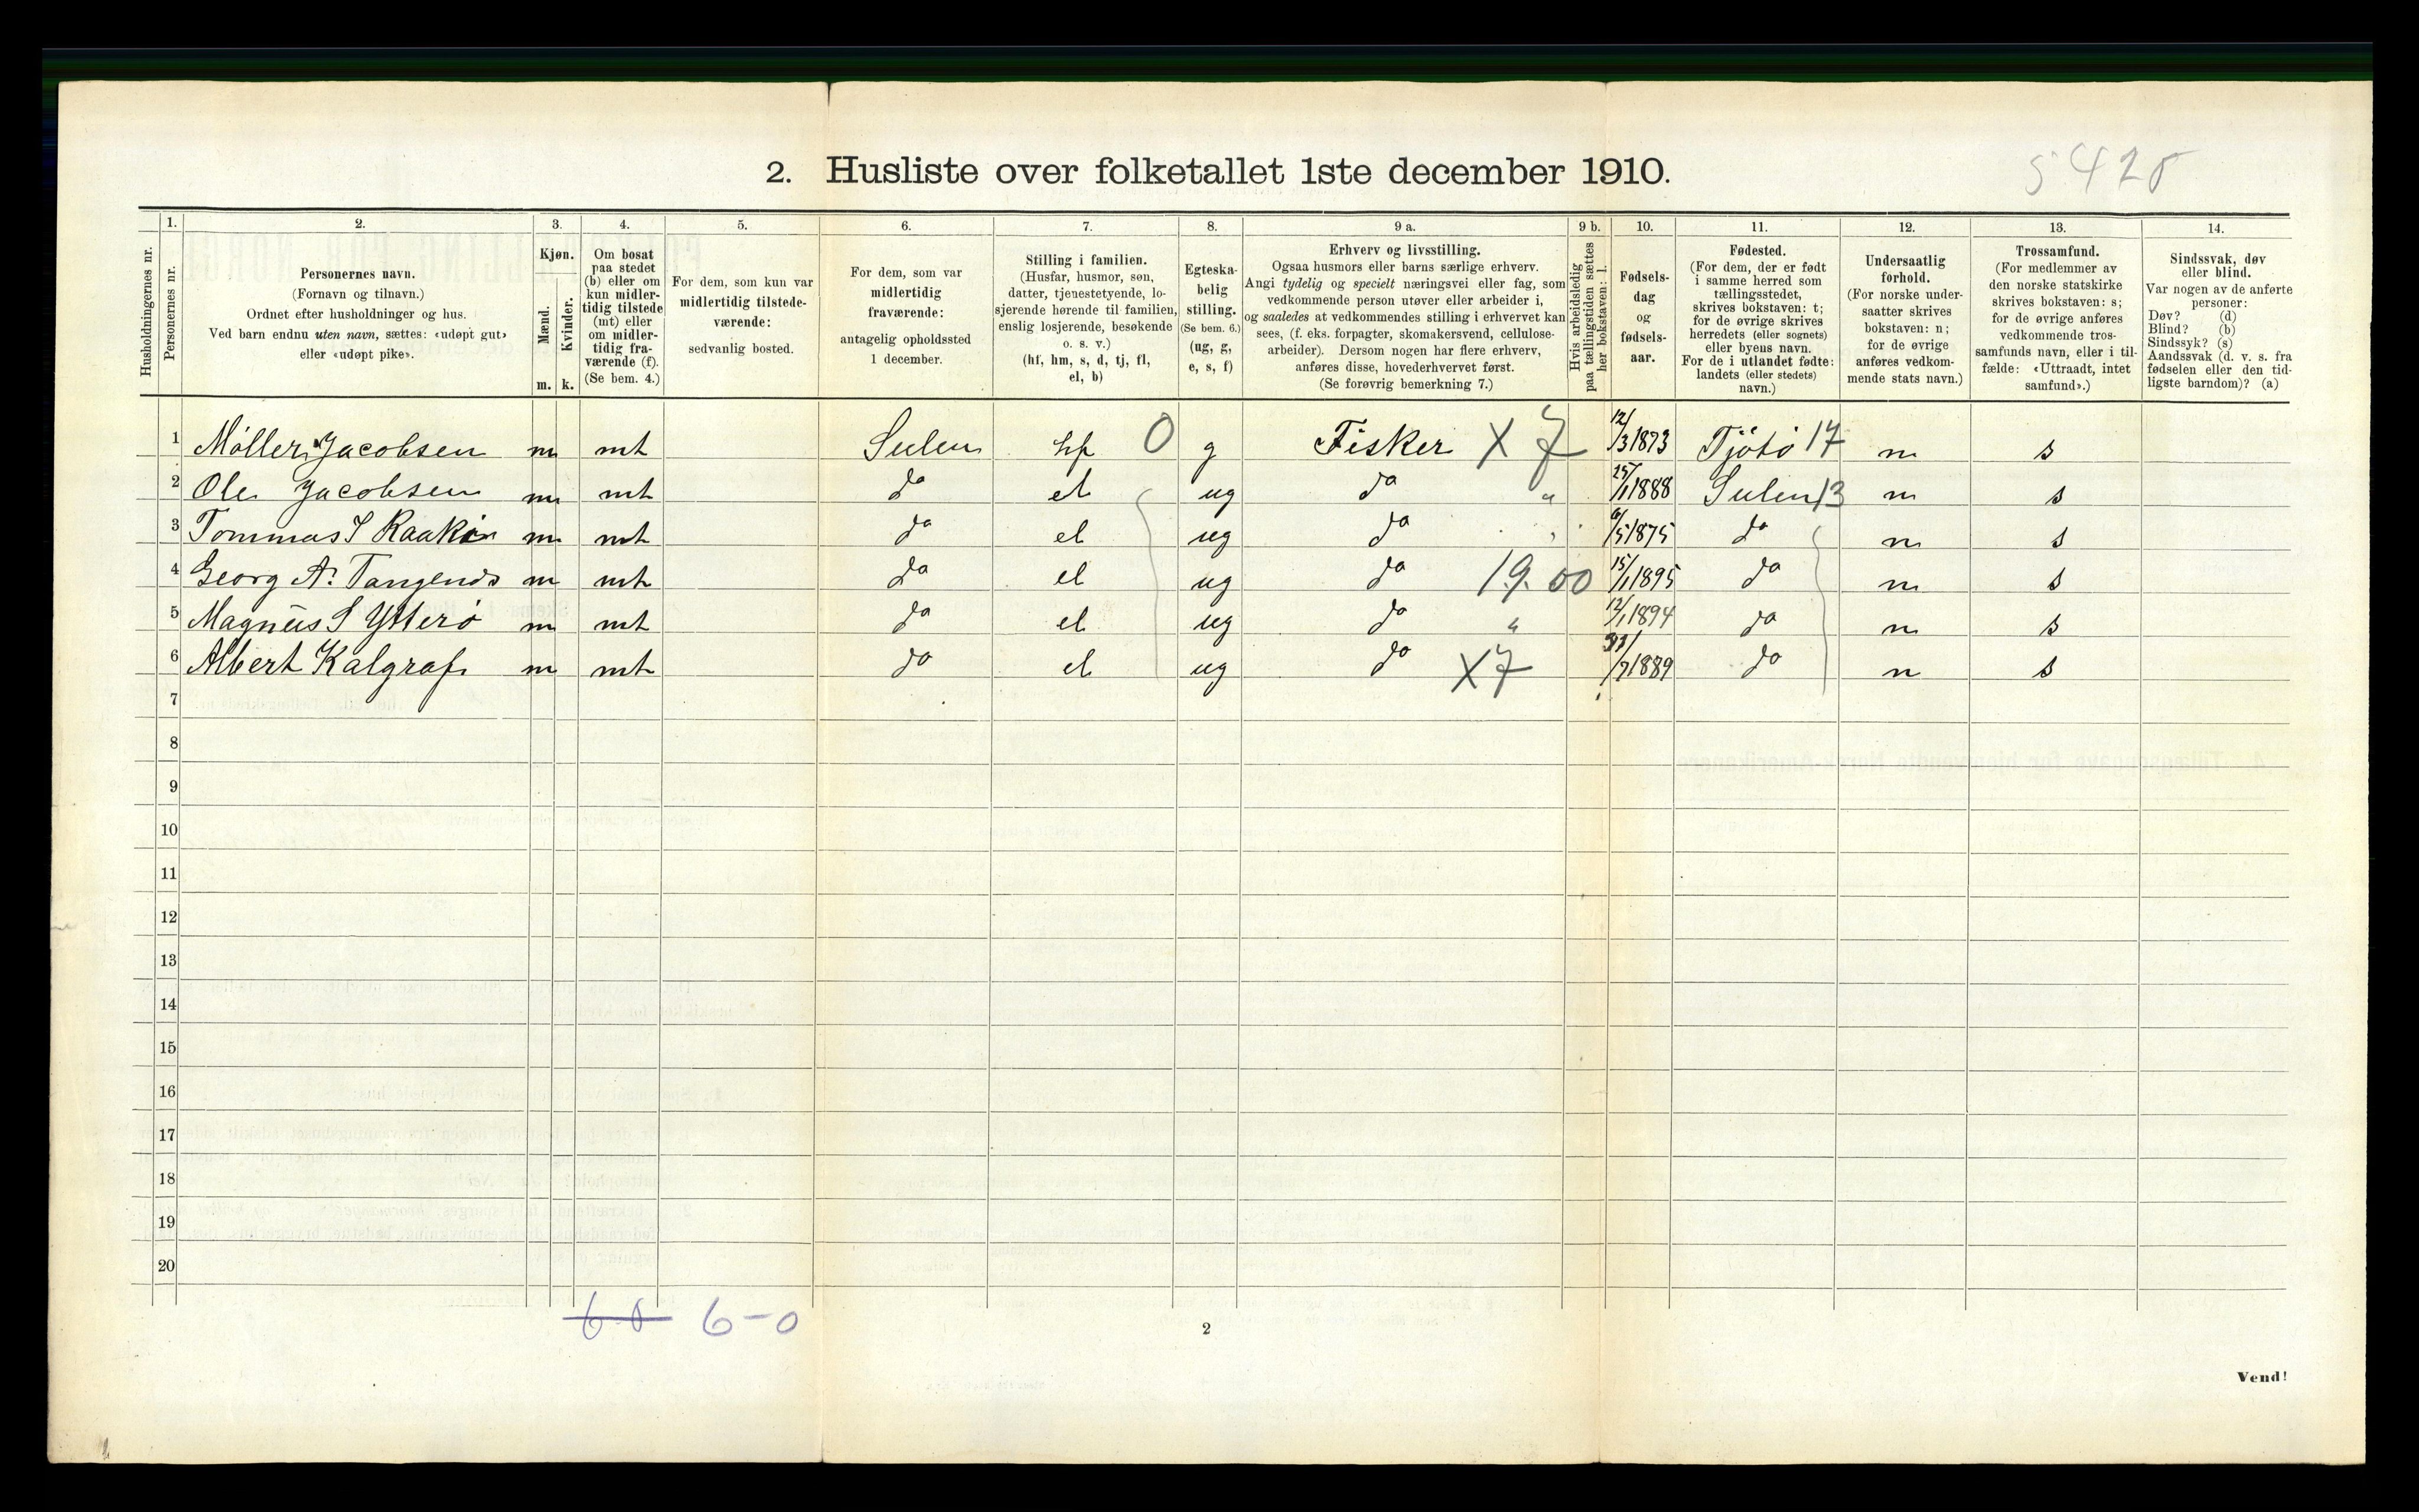 2. Husliste over folketallet 1ste december 1910.
5425
Husholdningernes nr.
1.
Personernes nr.
2.
Personernes navn.
(Fornavn og tilnavn.)
Ordnet efter husholdninger og hus.
Ved barn endnu uten navn, sættes: «udøpt gut»
eller «udøpt pike».
3.
Kjøn.
Mænd.
Kvinder.
m. k.
4.
Om bosat
paa stedet
(b) eller om
kun midler-
tidig tilstede
(mt) eller
om midler-
tidig fra-
værende (f).
(Se bem. 4.)
5.
For dem, som kun var
midlertidig tilstede-
værende:
sedvanlig bosted.
6.
For dem, som var
midlertidig
fraværende:
antagelig opholdssted
1 december.
7.
Stilling i familien.
(Husfar, husmor, søn,
datter, tjenestetyende, lo-
sjerende hørende til familien,
enslig losjerende, besøkende
o. s. v.)
(hf, hm, s, d, tj, fl,
el, b)
8.
Egteska-
belig
stilling.
(Se bem. 6.)
(ug, g,
e, s, f)
9 a.
Erhverv og livsstilling.
Ogsaa husmors eller barns særlige erhverv.
Angi tydelig og specielt næringsvei eller fag, som
vedkommende person utøver eller arbeider i,
og saaledes at vedkommendes stilling i erhvervet kan
sees, (f. eks. forpagter, skomakersvend, cellulose-
arbeider). Dersom nogen har flere erhverv,
anføres disse, hovederhvervet først.
(Se forøvrig bemerkning 7.)
9 b.
Hvis arbeidsledig
paa tællingstiden sættes
her bokstaven: l.
10.
Fødsels-
dag
og
fødsels-
aar.
11.
Fødested.
(For dem, der er født
i samme herred som
tællingsstedet,
skrives bokstaven: t;
for de øvrige skrives
herredets (eller sognets)
eller byens navn.
For de i utlandet fødte:
landets (eller stedets)
navn.)
12.
Undersaatlig
forhold.
(For norske under-
saatter skrives
bokstaven: n;
for de øvrige
anføres vedkom-
mende stats navn.)
13.
Trossamfund.
(For medlemmer av
den norske statskirke
skrives bokstaven: s;
for de øvrige anføres
vedkommende tros-
samfunds navn, eller i til-
fælde: «Uttraadt, intet
samfund».)
14.
Sindssvak, døv
eller blind.
Var nogen av de anførte
personer:
Døv? (d)
Blind? (b)
Sindssyk? (s)
Aandssvak (d. v. s. fra
fødselen eller den tid-
ligste barndom)? (a)
1 Möller Jacobsen m mt Sulen hf 0 g Fisker X 7 12/3 1873 Tjötö 17 n s
2 Ole Jacobsen m mt do el ug do " 25/1 1888 Sulen 13 n s
3 Tommas J Raakin m mt do el ug do 6/5 1875 do n s
4 Georg A. Tangenes m mt do el ug do 19.00 15/1 1895 do n s
5 Magnus S Ytterö m mt do el ug do " 12/1 1894 do n s
6 Albert Kalgraf m mt do el ug do X7 /7 1889 do n s
7
8
9
10
11
12
13
14
15
16
17
18
19
20
6-0 6-0
2
Vend!